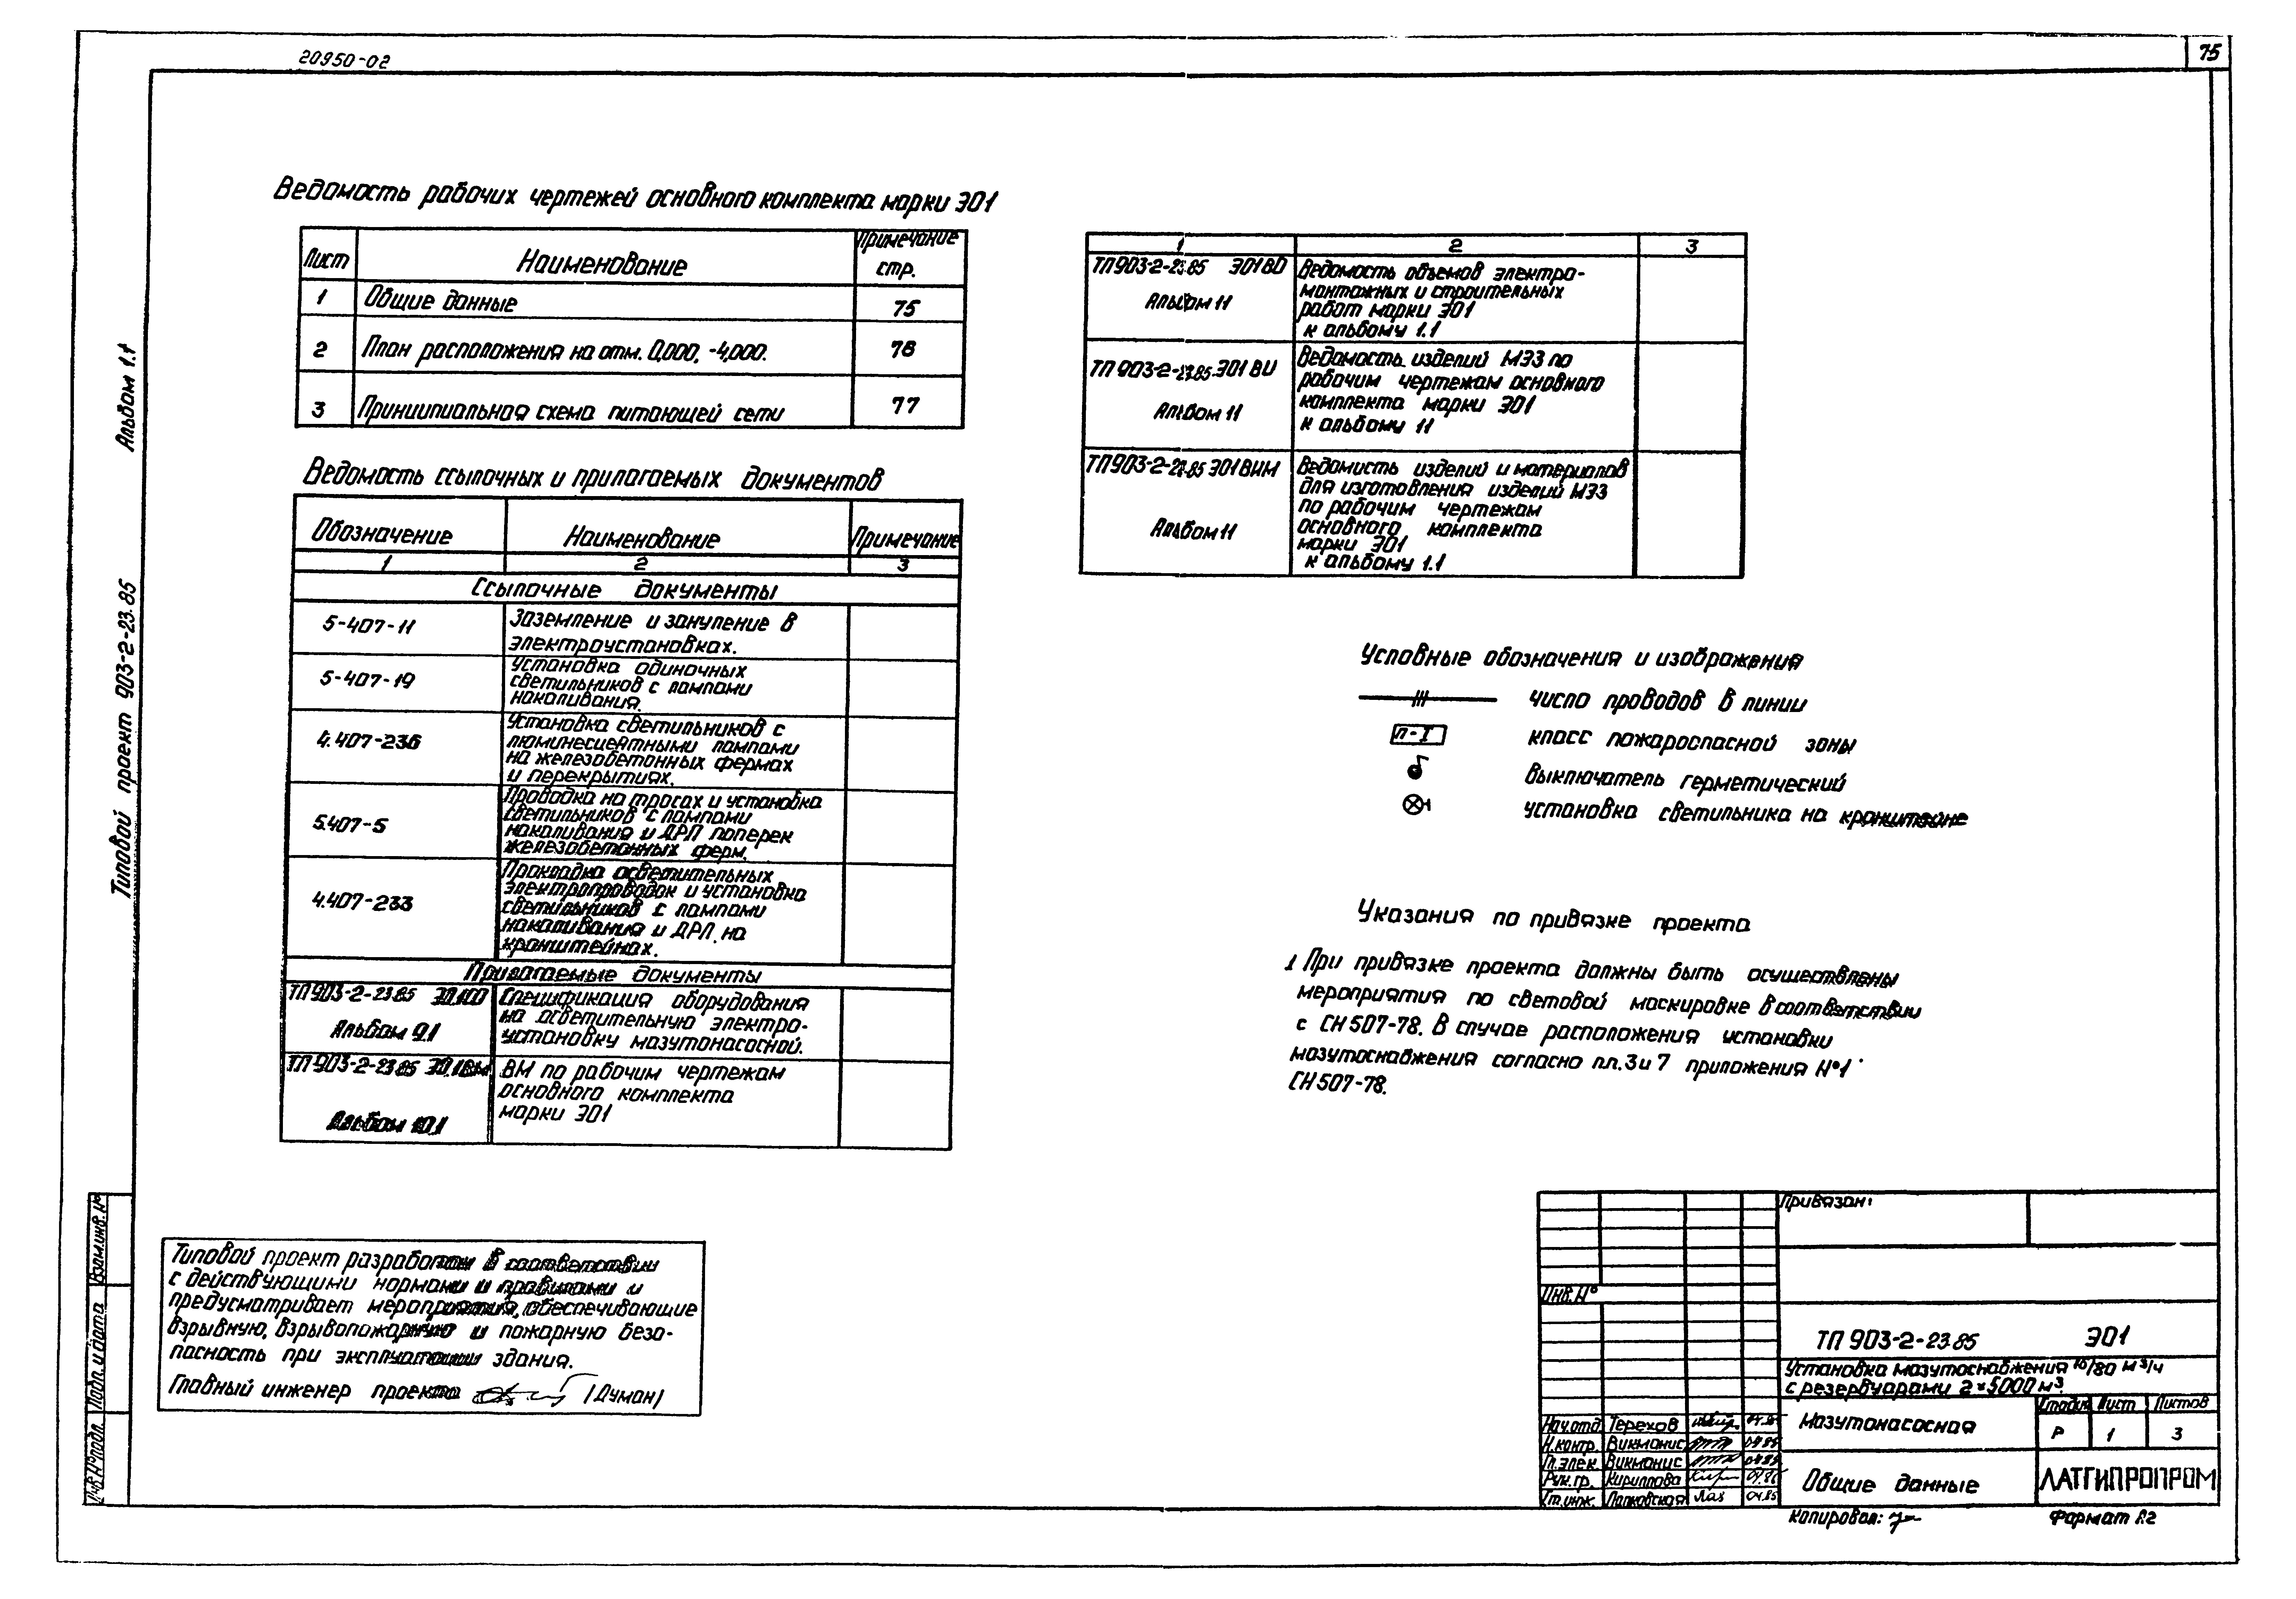 20950-02
75
Альбом 1.1
Типовой проект 903-2-23.85
Ведомость рабочих чертежей основного комплекта марки ЭО1
Лист
Наименование
Примечание
стр.
1
Общие данные
75
2
План расположения на отм. 0,000, -4,000.
76
3
Принципиальная схема питающей сети
77
Ведомость ссылочных и прилагаемых документов
Обозначение
Наименование
Примечание
1
2
3
Ссылочные документы
5-407-11
Заземление и зануление в
электроустановках.
5-407-19
Установка одиночных
светильников с лампами
накаливания.
4.407-236
Установка светильников с
люминесцентными лампами
на железобетонных фермах
и перекрытиях.
5.407-5
Проводка на тросах и установка
светильников с лампами
накаливания и ДРЛ поперек
железобетонных ферм.
4.407-233
Прокладка осветительных
электропроводок и установка
светильников с лампами
накаливания и ДРЛ. на
кронштейнах.
Прилагаемые документы
ТП 903-2-23.85
Альбом 9.1
Спецификация оборудования
на осветительную электро-
установку мазутонасосной.
ТП 903-2-23.85
Альбом 10.1
ВМ по рабочим чертежам
основного комплекта
марки ЭО1
1
2
3
ТП 903-2-23.85 ЭО1 ВО
Альбом 11
Ведомость объемов электро-
монтажных и строительных
работ марки ЭО1
к альбому 1.1
ТП 903-2-23.85. ЭО1 ВИ
Альбом 11
Ведомость изделий МЭЗ по
рабочим чертежам основного
комплекта марки ЭО1
к альбому 11
ТП 903-2-23.85 ЭО1 ВИМ
Альбом 11
Ведомость изделий и материалов
для изготовления изделий МЭЗ
по рабочим чертежам
основного комплекта
марки ЭО1
к альбому 1.1
Условные обозначения и изображения
число проводов в линии
П-I
класс пожароопасной зоны
Выключатель герметический
установка светильника на кронштейне
Указания по привязке проекта
1 При привязке проекта должны быть осуществлены
мероприятия по световой маскировке в соответствии
с СН 507-78. В случае расположения установки
мазутоснабжения согласно пп. 3 и 7 приложения №1
СН 507-78.
Типовой проект разработан в соответствии
с действующими нормами и правилами и
предусматривает мероприятия, обеспечивающие
взрывную, взрывопожарную и пожарную безо-
пасность при эксплуатации здания.
Главный инженер проекта (Думан)
Взам. инв. №
Подп. и дата
Инв. № подл.
Привязан:
Инв. №
ТП 903-2-23.85 ЭО1
Установка мазутоснабжения 16/80 м³/ч
с резервуарами 2×5000 м³.
Мазутонасосная
Стадия Лист Листов
Р 1 3
Общие данные
ЛАТГИПРОПРОМ
Нач. отд. Терехов
Н. контр. Викманис
Гл. элек. Викманис
Рук. гр. Кириллова
Ст. инж. 04.85
Копировал:
Формат А2